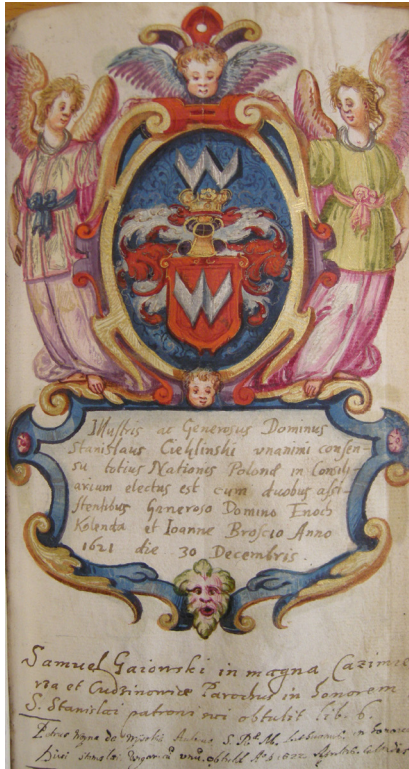 Illustris ac Generosus Dominus
Stanislaus Cieklinski unanimi consen-
su totius Nationis Polonæ in Consili-
arium electus est cum duobus assi-
stentibus Generoso Domino Enoch
Kolenda et Ioanne Broscio Anno
1621 die 30 Decembris.
Samuel Gaiowski in magna Cazimi
ria et Cudzinowice Parochus in honorem
S. Stanislai patroni obtulit lib. 6.
Petrus de S. in honorem
Divi Stanislai obtulit